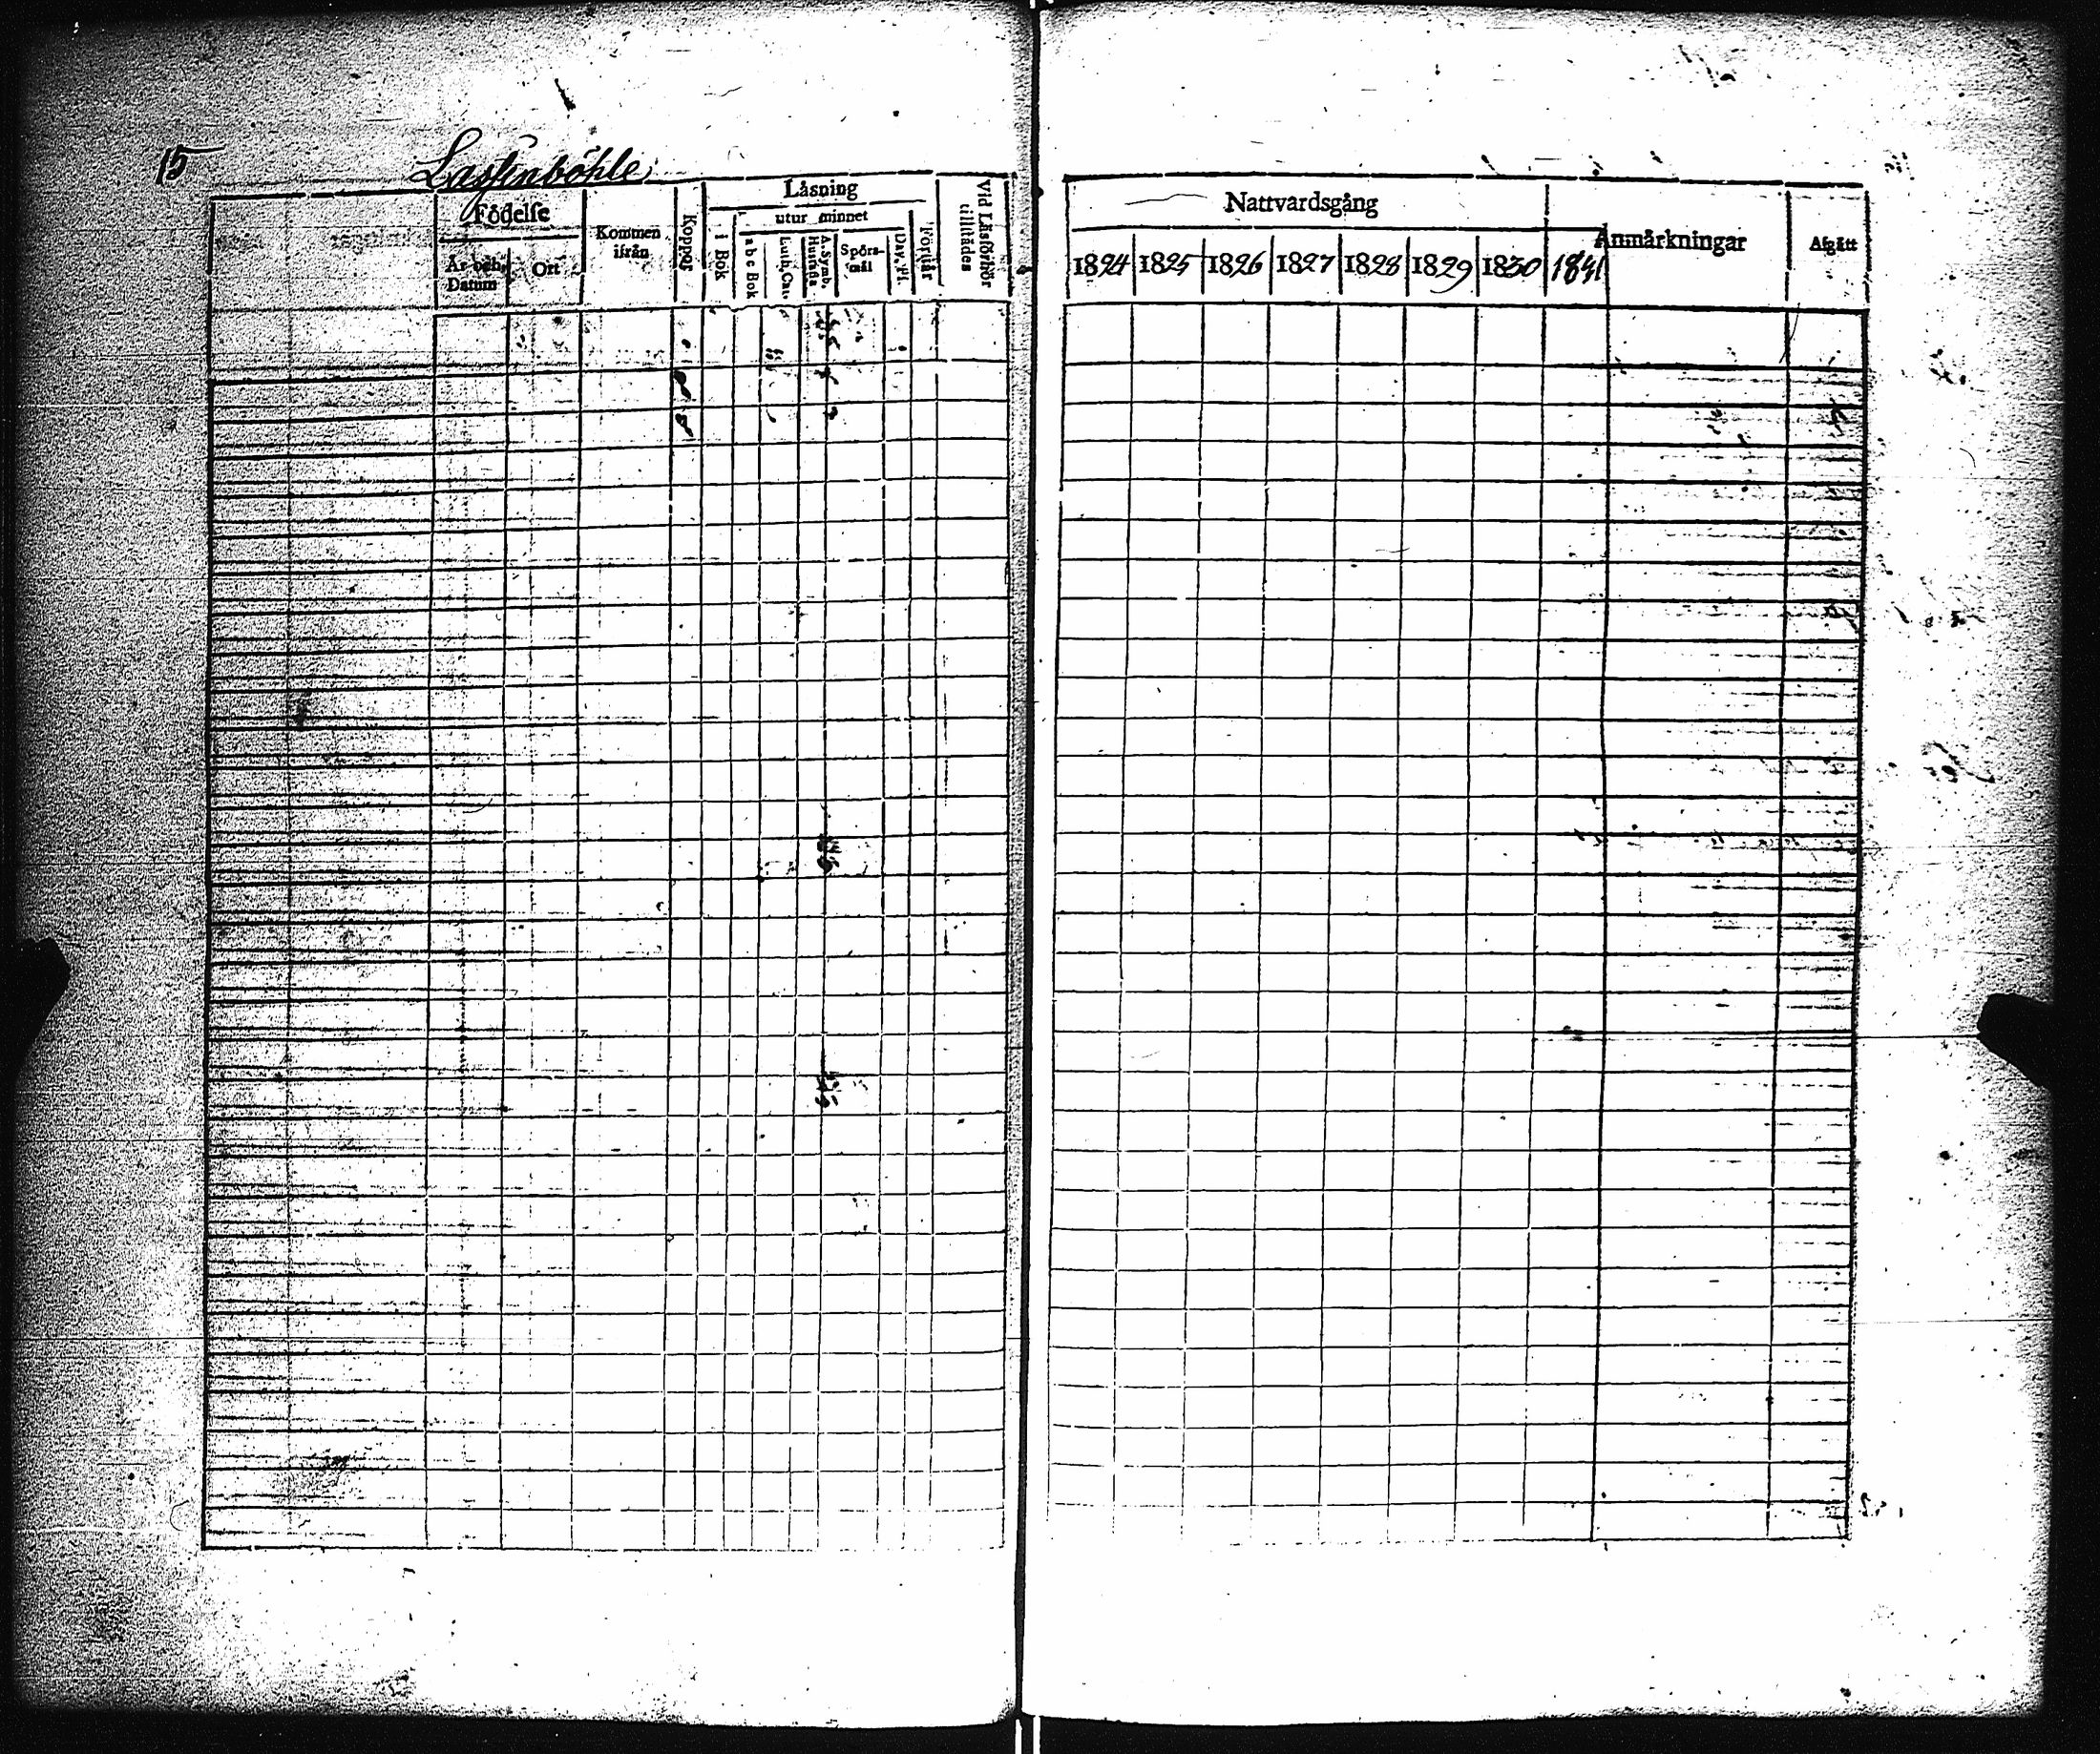 15
Lassenböhle
Födelse
År och Datum
Ort
Kommen ifrån
Koppor
Läsning
i Bok
utur minnet
a b c Bok
Luth. Cat.
A. Symb. Hustafla
Spörs-mål
Dav. Ps.
Förstår
Vid Läsförhör tillstädes
Nattvardsgång
1824 1825 1826 1827 1828 1829 1830 1831
Anmärkningar
Afgått